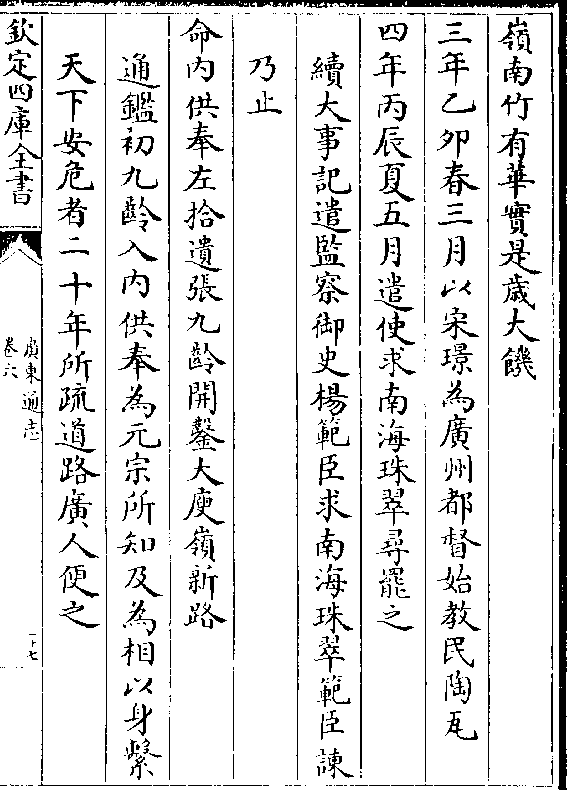 嶺南竹有華實是歲大饑
三年乙卯春三月以宋璟為廣州都督始教民陶瓦
四年丙辰夏五月遣使求南海珠翠尋罷之
續大事記遣監察御史楊範臣求南海珠翠範臣諫
乃止
命內供奉左拾遺張九齡開鑿大庾嶺新路
通鑑初九齡入內供奉為元宗所知及為相以身繫
天下安危者二十年所疏道路廣人便之
欽定四庫全書
廣東通志
卷六
十七